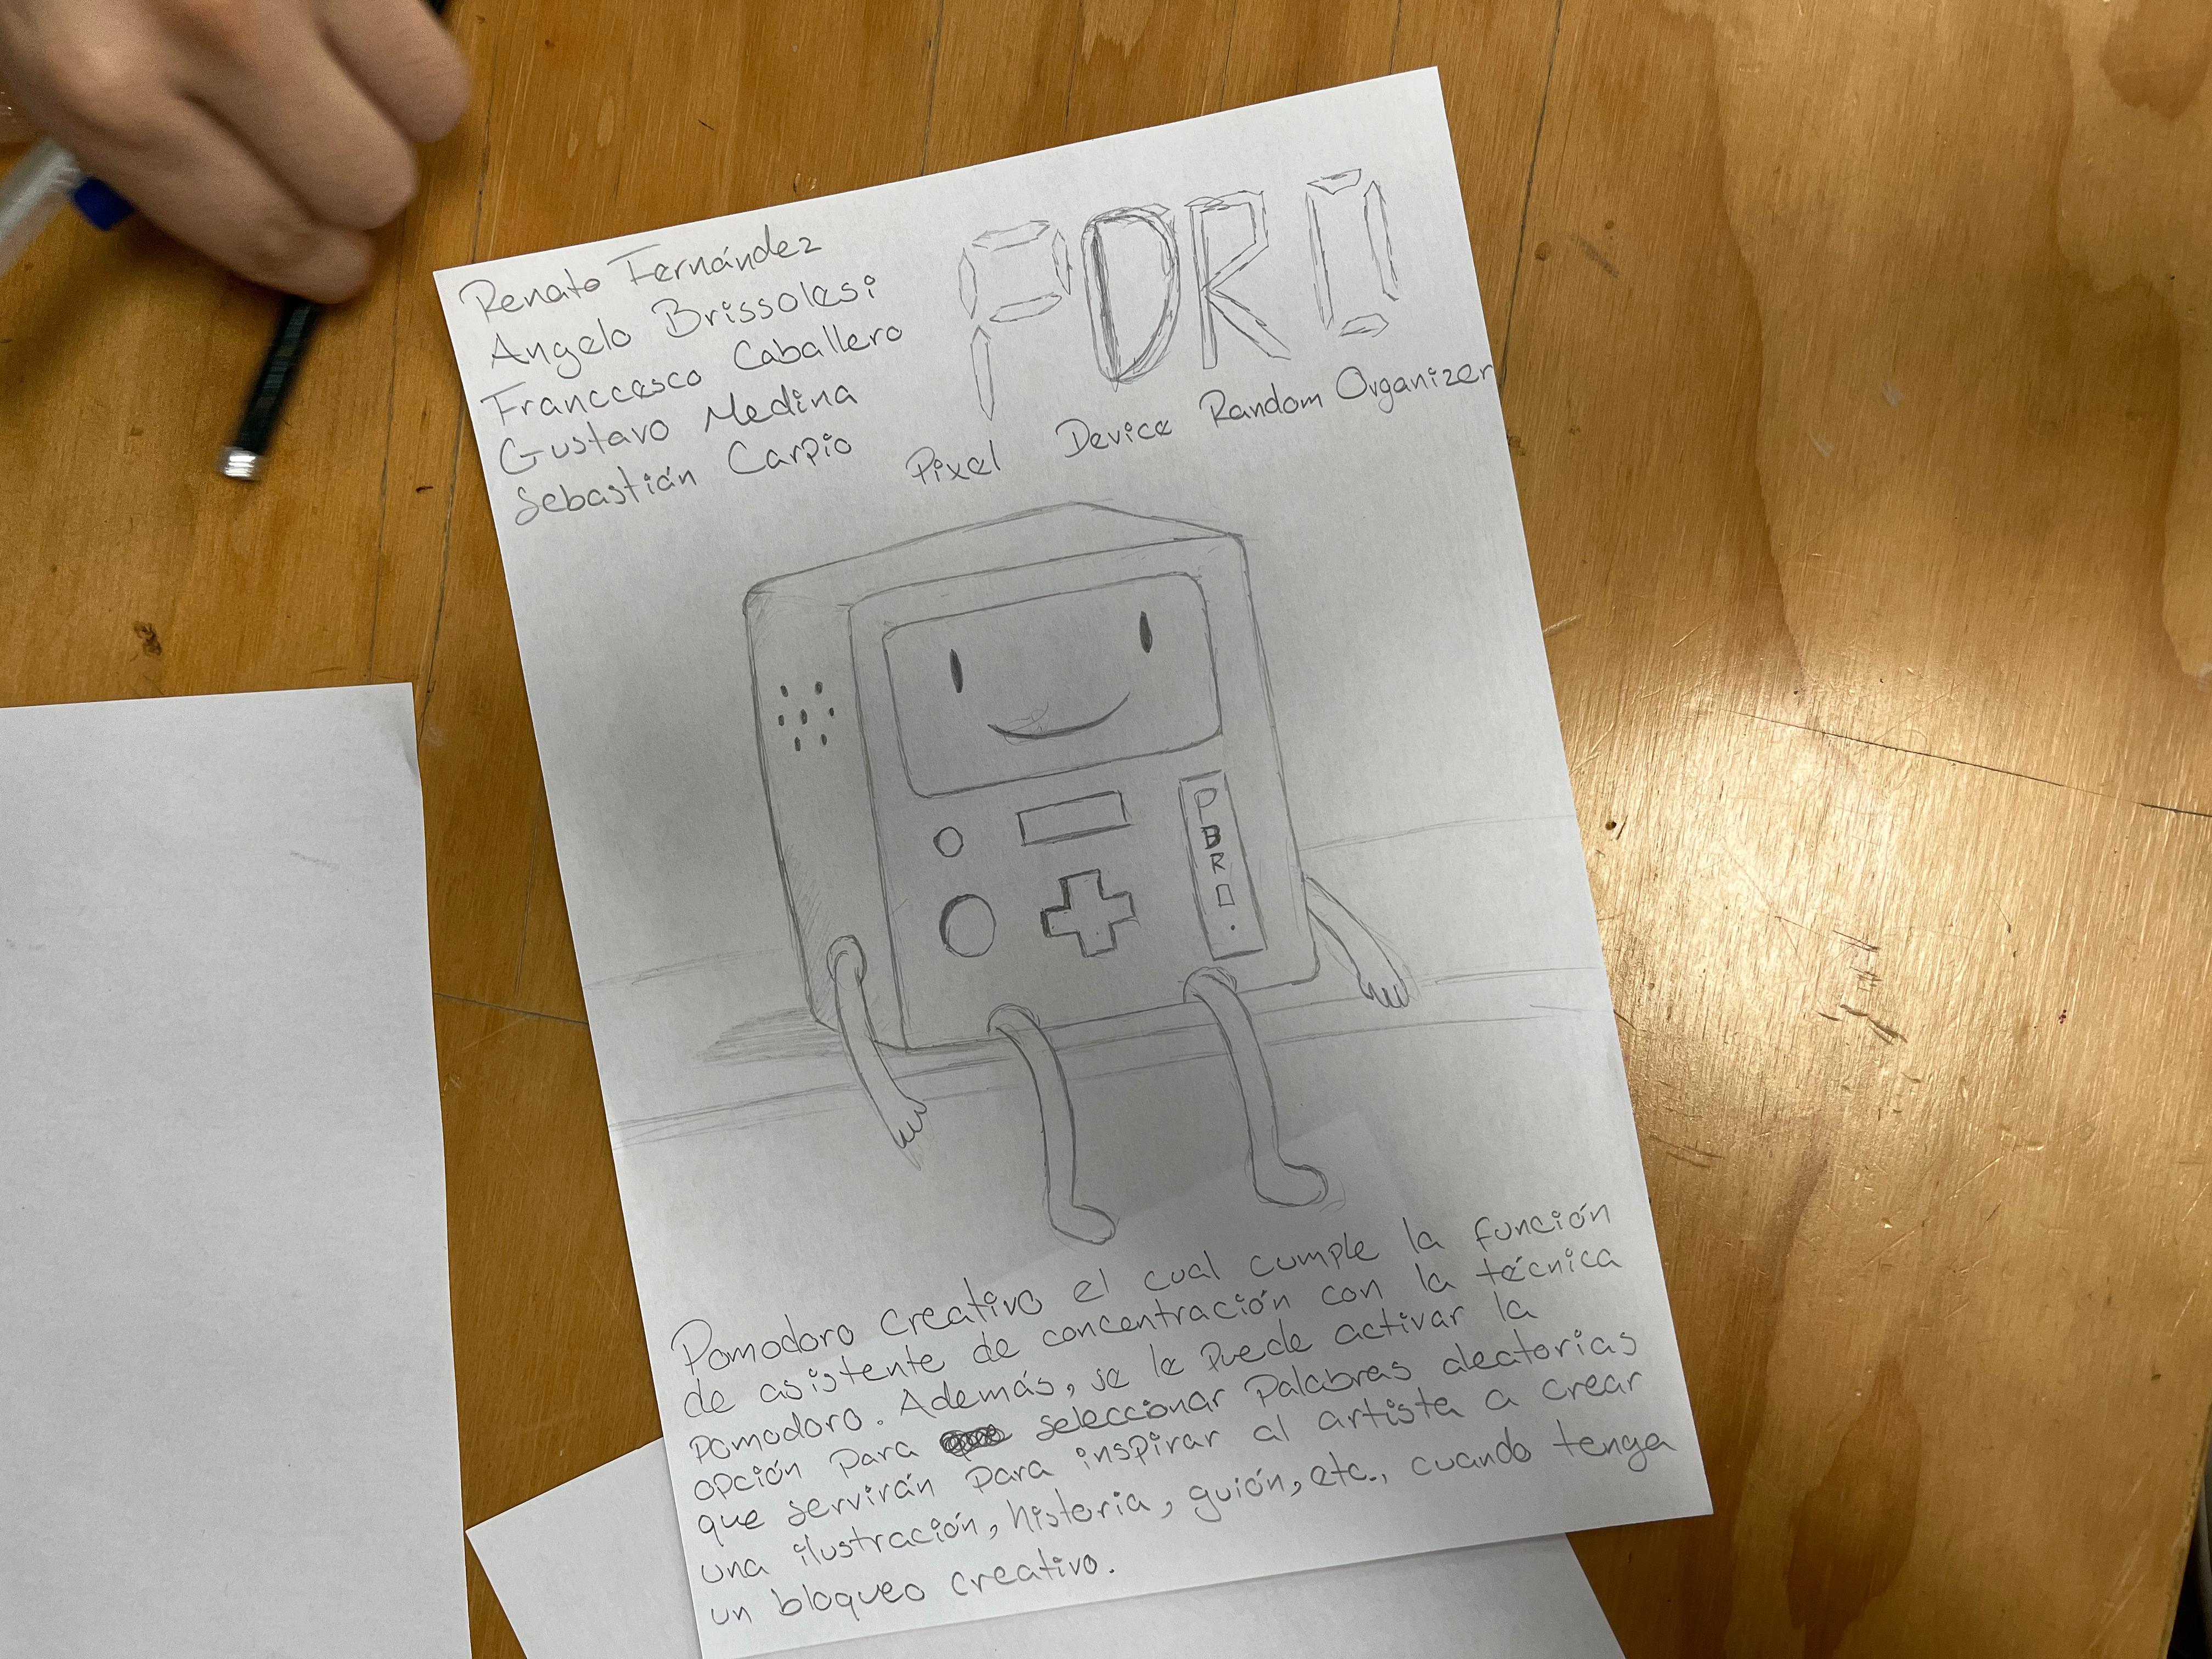 Renato Fernández
Angelo Brissolesi
Franccesco Caballero
Gustavo Medina
Sebastián Carpio
PDRO
Pixel Device Random Organizer
PBRO.
Pomodoro creativo el cual cumple la función
de asistente de concentración con la técnica
pomodoro. Además, se le puede activar la
opción para seleccionar palabras aleatorias
que servirán para inspirar al artista a crear
una ilustración, historia, guión, etc., cuando tenga
un bloqueo creativo.